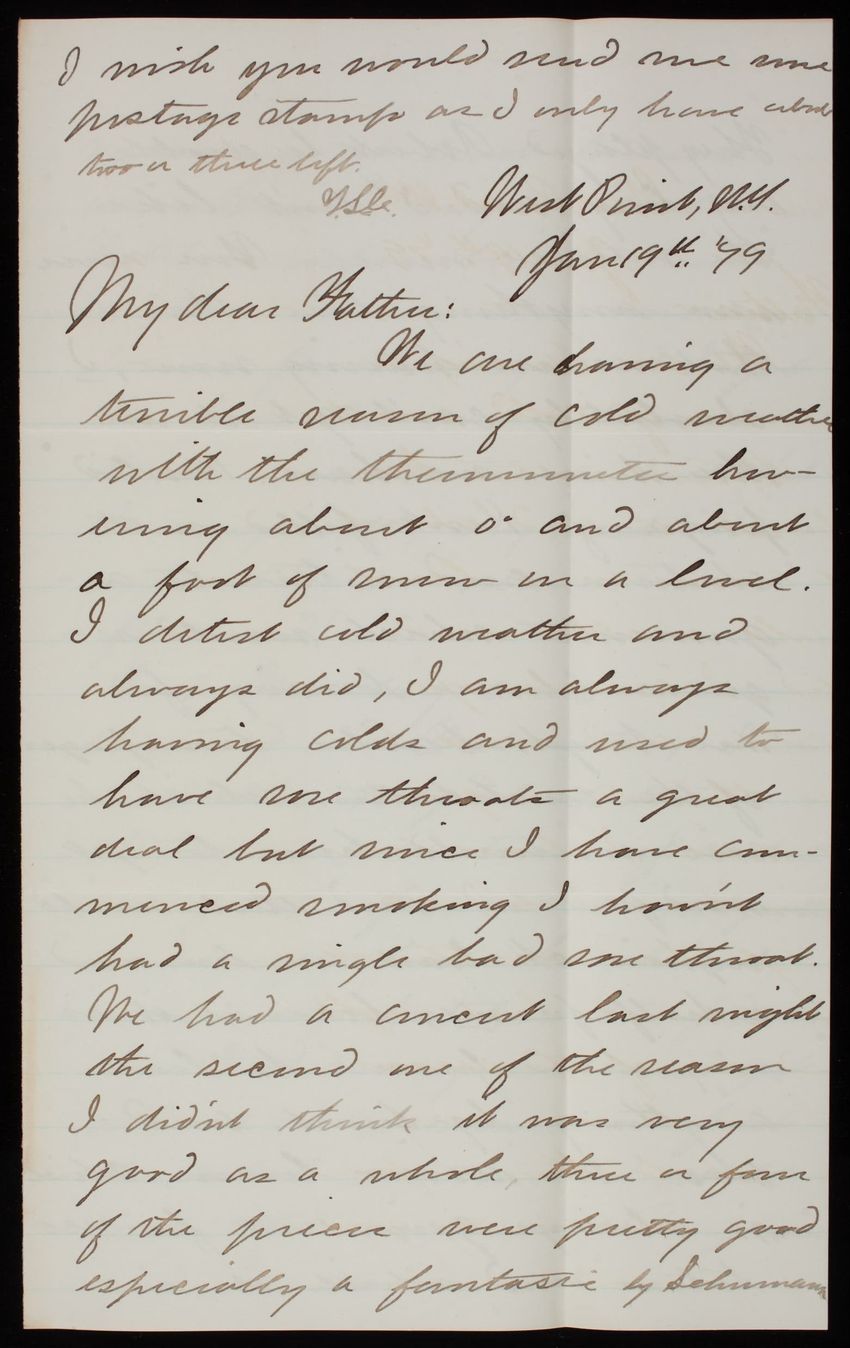 I wish you would send me some
postage stamps as I only have about
two or three left.
West Point, N.Y.
Jan 19th '79
My dear Father:
We are having a
terrible season of cold weather
with the thermometer hov-
ering about 0° and about
a foot of snow on a level.
I detest cold weather and
always did, I am always
having colds and used to
have sore throats a great
deal but since I have com-
menced smoking I havn't
had a single bad sore throat.
We had a concert last night
the second one of the season
I didn't think it was very
good as a whole, three or four
of the pieces were pretty good
especially a fantasie by Schumann